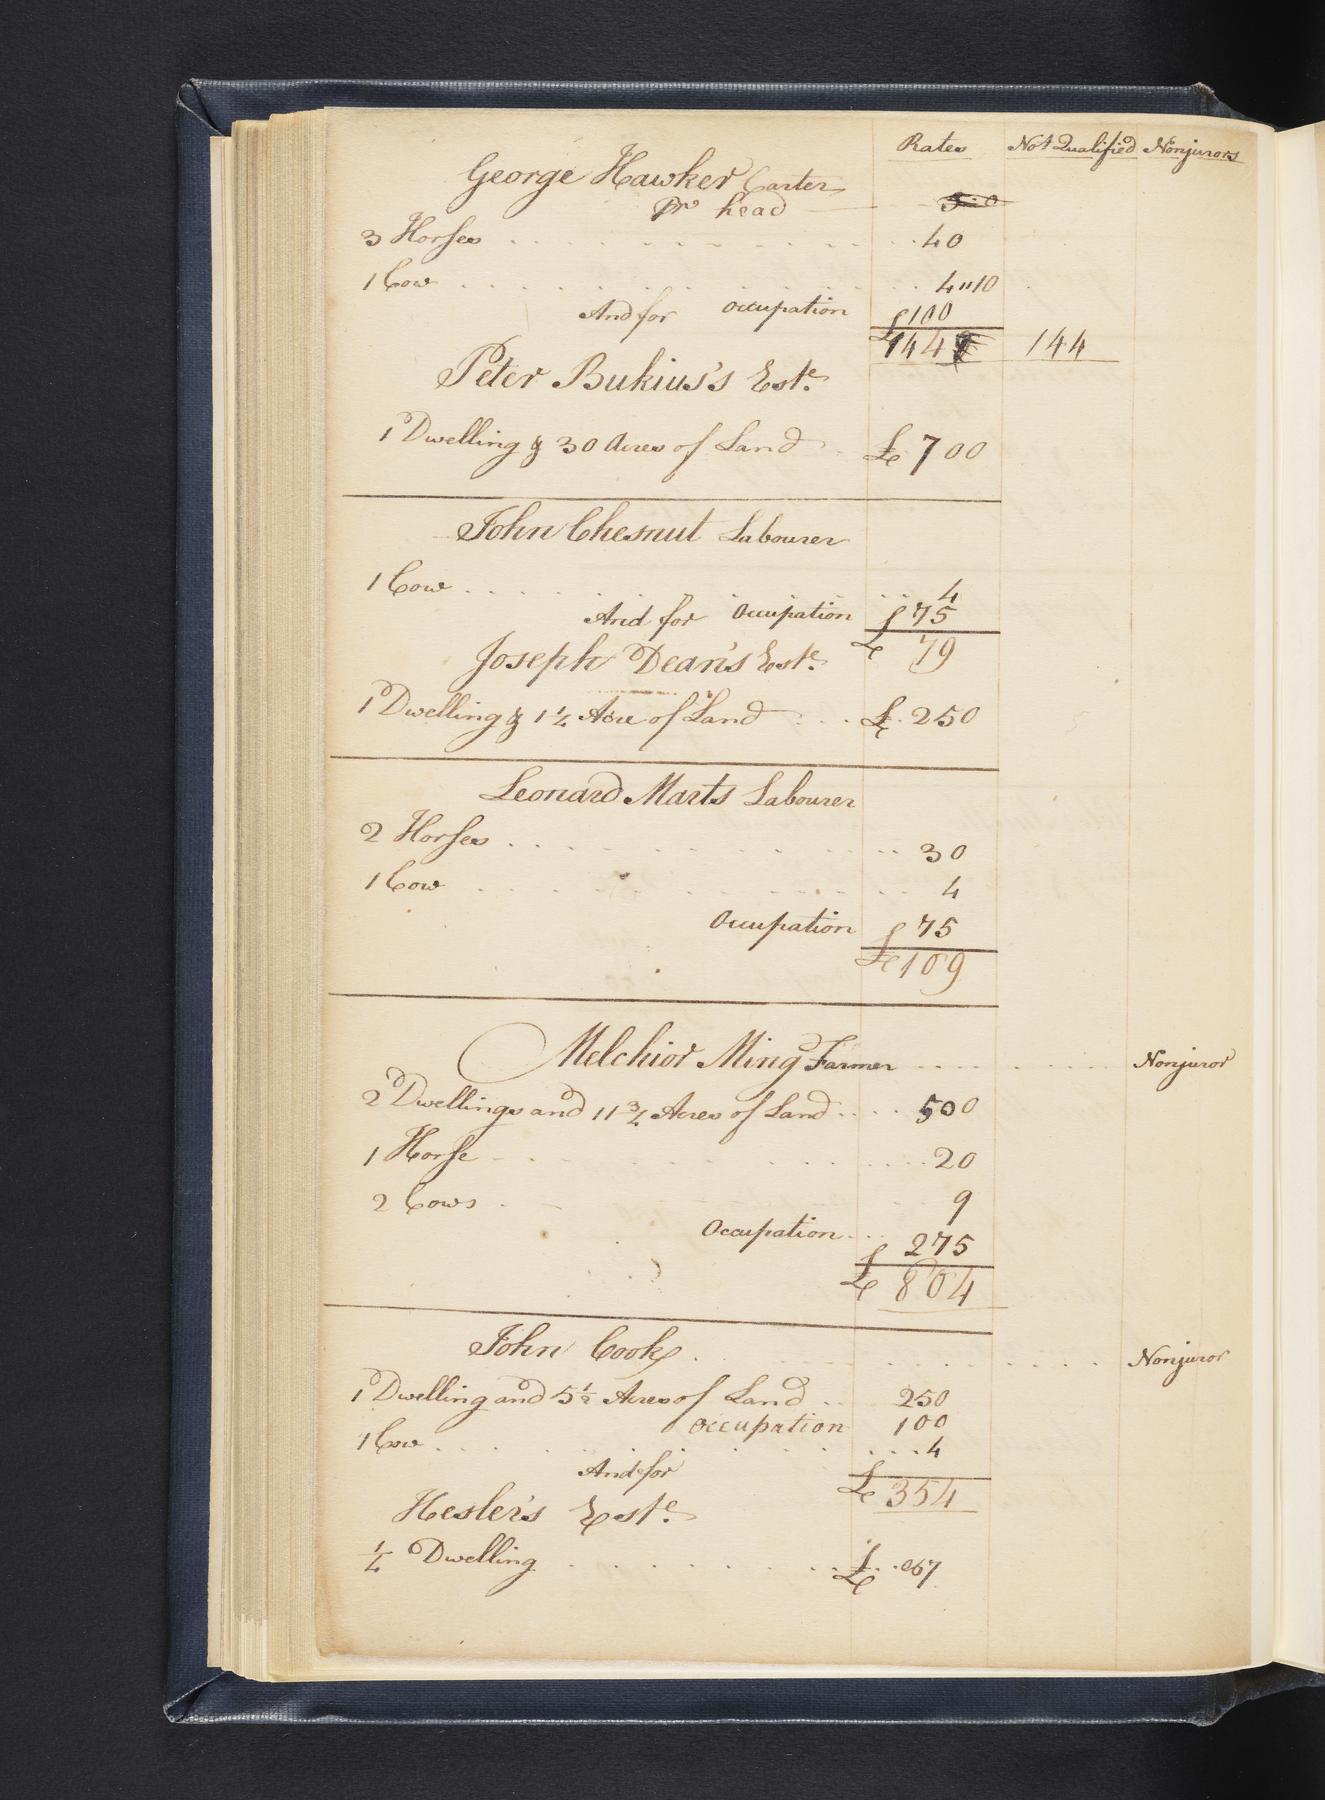 Rates Not Qualified Nonjurors
George Hawker Carter
Pr head
3 Horses 40
1 Cow 4"10
And for Occupation £100
£144 144
Peter Bukius's Este.
1 Dwelling & 30 Acres of Land £700
John Chesnut Labourer
1 Cow 4
And for Occupation £75
£ 79
Joseph Dean's Este.
1 Dwelling & 1¼ Acre of Land £.250
Leonard Marts Labourer
2 Horses 30
1 Cow 4
Occupation £75
£109
Melchior Ming Farmer Nonjuror
2 Dwellings and 11¾ Acres of Land 500
1 Horse 20
2 Cows 9
Occupation £275
£ 804
John Cook Nonjuror
1 Dwelling and 5½ Acres of Land 250
Occupation 100
1 Cow 4
And for
£354
Hesler's Este.
¼ Dwelling £ 067